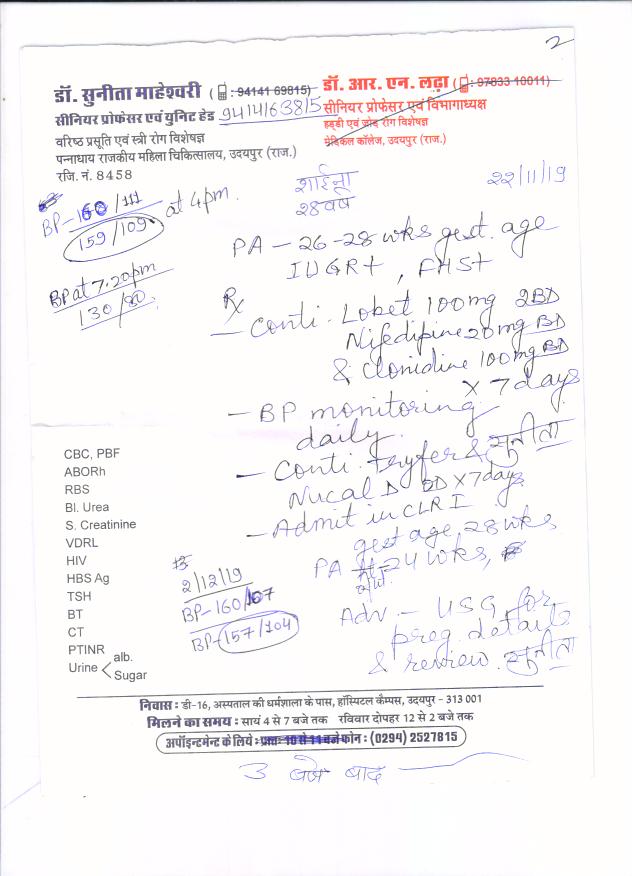 2
डॉ. सुनीता माहेश्वरी (: 94141 69815)
सीनियर प्रोफेसर एवं युनिट हेड 9414163815
वरिष्ठ प्रसूति एवं स्त्री रोग विशेषज्ञ
पन्नाधाय राजकीय महिला चिकित्सालय, उदयपुर (राज.)
रजि. नं. 8458
डॉ. आर. एन. लढ़ा (: 97833 10011)
सीनियर प्रोफेसर एवं विभागाध्यक्ष
हड्डी एवं जोड़ रोग विशेषज्ञ
मेडिकल कॉलेज, उदयपुर (राज.)
शाईना
28 वर्ष
22/11/19
BP-160/111
159/109 at 4pm.
BP at 7.20pm
130/80
PA - 26-28 wks gest. age
IUGR+, FHS+
Rx
- Conti. Lobet 100mg 2BD
Nifedipine 20mg BD
& Clonidine 100mg BD
x 7 days
- BP monitoring
daily.
सुनीता
- Conti. Feryfer &
Nucal D BD x 7 days
- Admit in CLR I
CBC, PBF
ABORh
RBS
Bl. Urea
S. Creatinine
VDRL
HIV
HBS Ag
TSH
BT
CT
PTINR
Urine alb.
Sugar
2/12/19
BP-160/107
BP-157/104
gest age, 28 wks
PA 24 wks,
Adv. - USG for
preg. details
& review. सुनीता
निवास : डी-16, अस्पताल की धर्मशाला के पास, हॉस्पिटल कैम्पस, उदयपुर - 313 001
मिलने का समय : सायं 4 से 7 बजे तक रविवार दोपहर 12 से 2 बजे तक
अपॉइन्टमेन्ट के लिये : प्रातः 10 से 11 बजे फोन : (0294) 2527815
3 बजे बाद